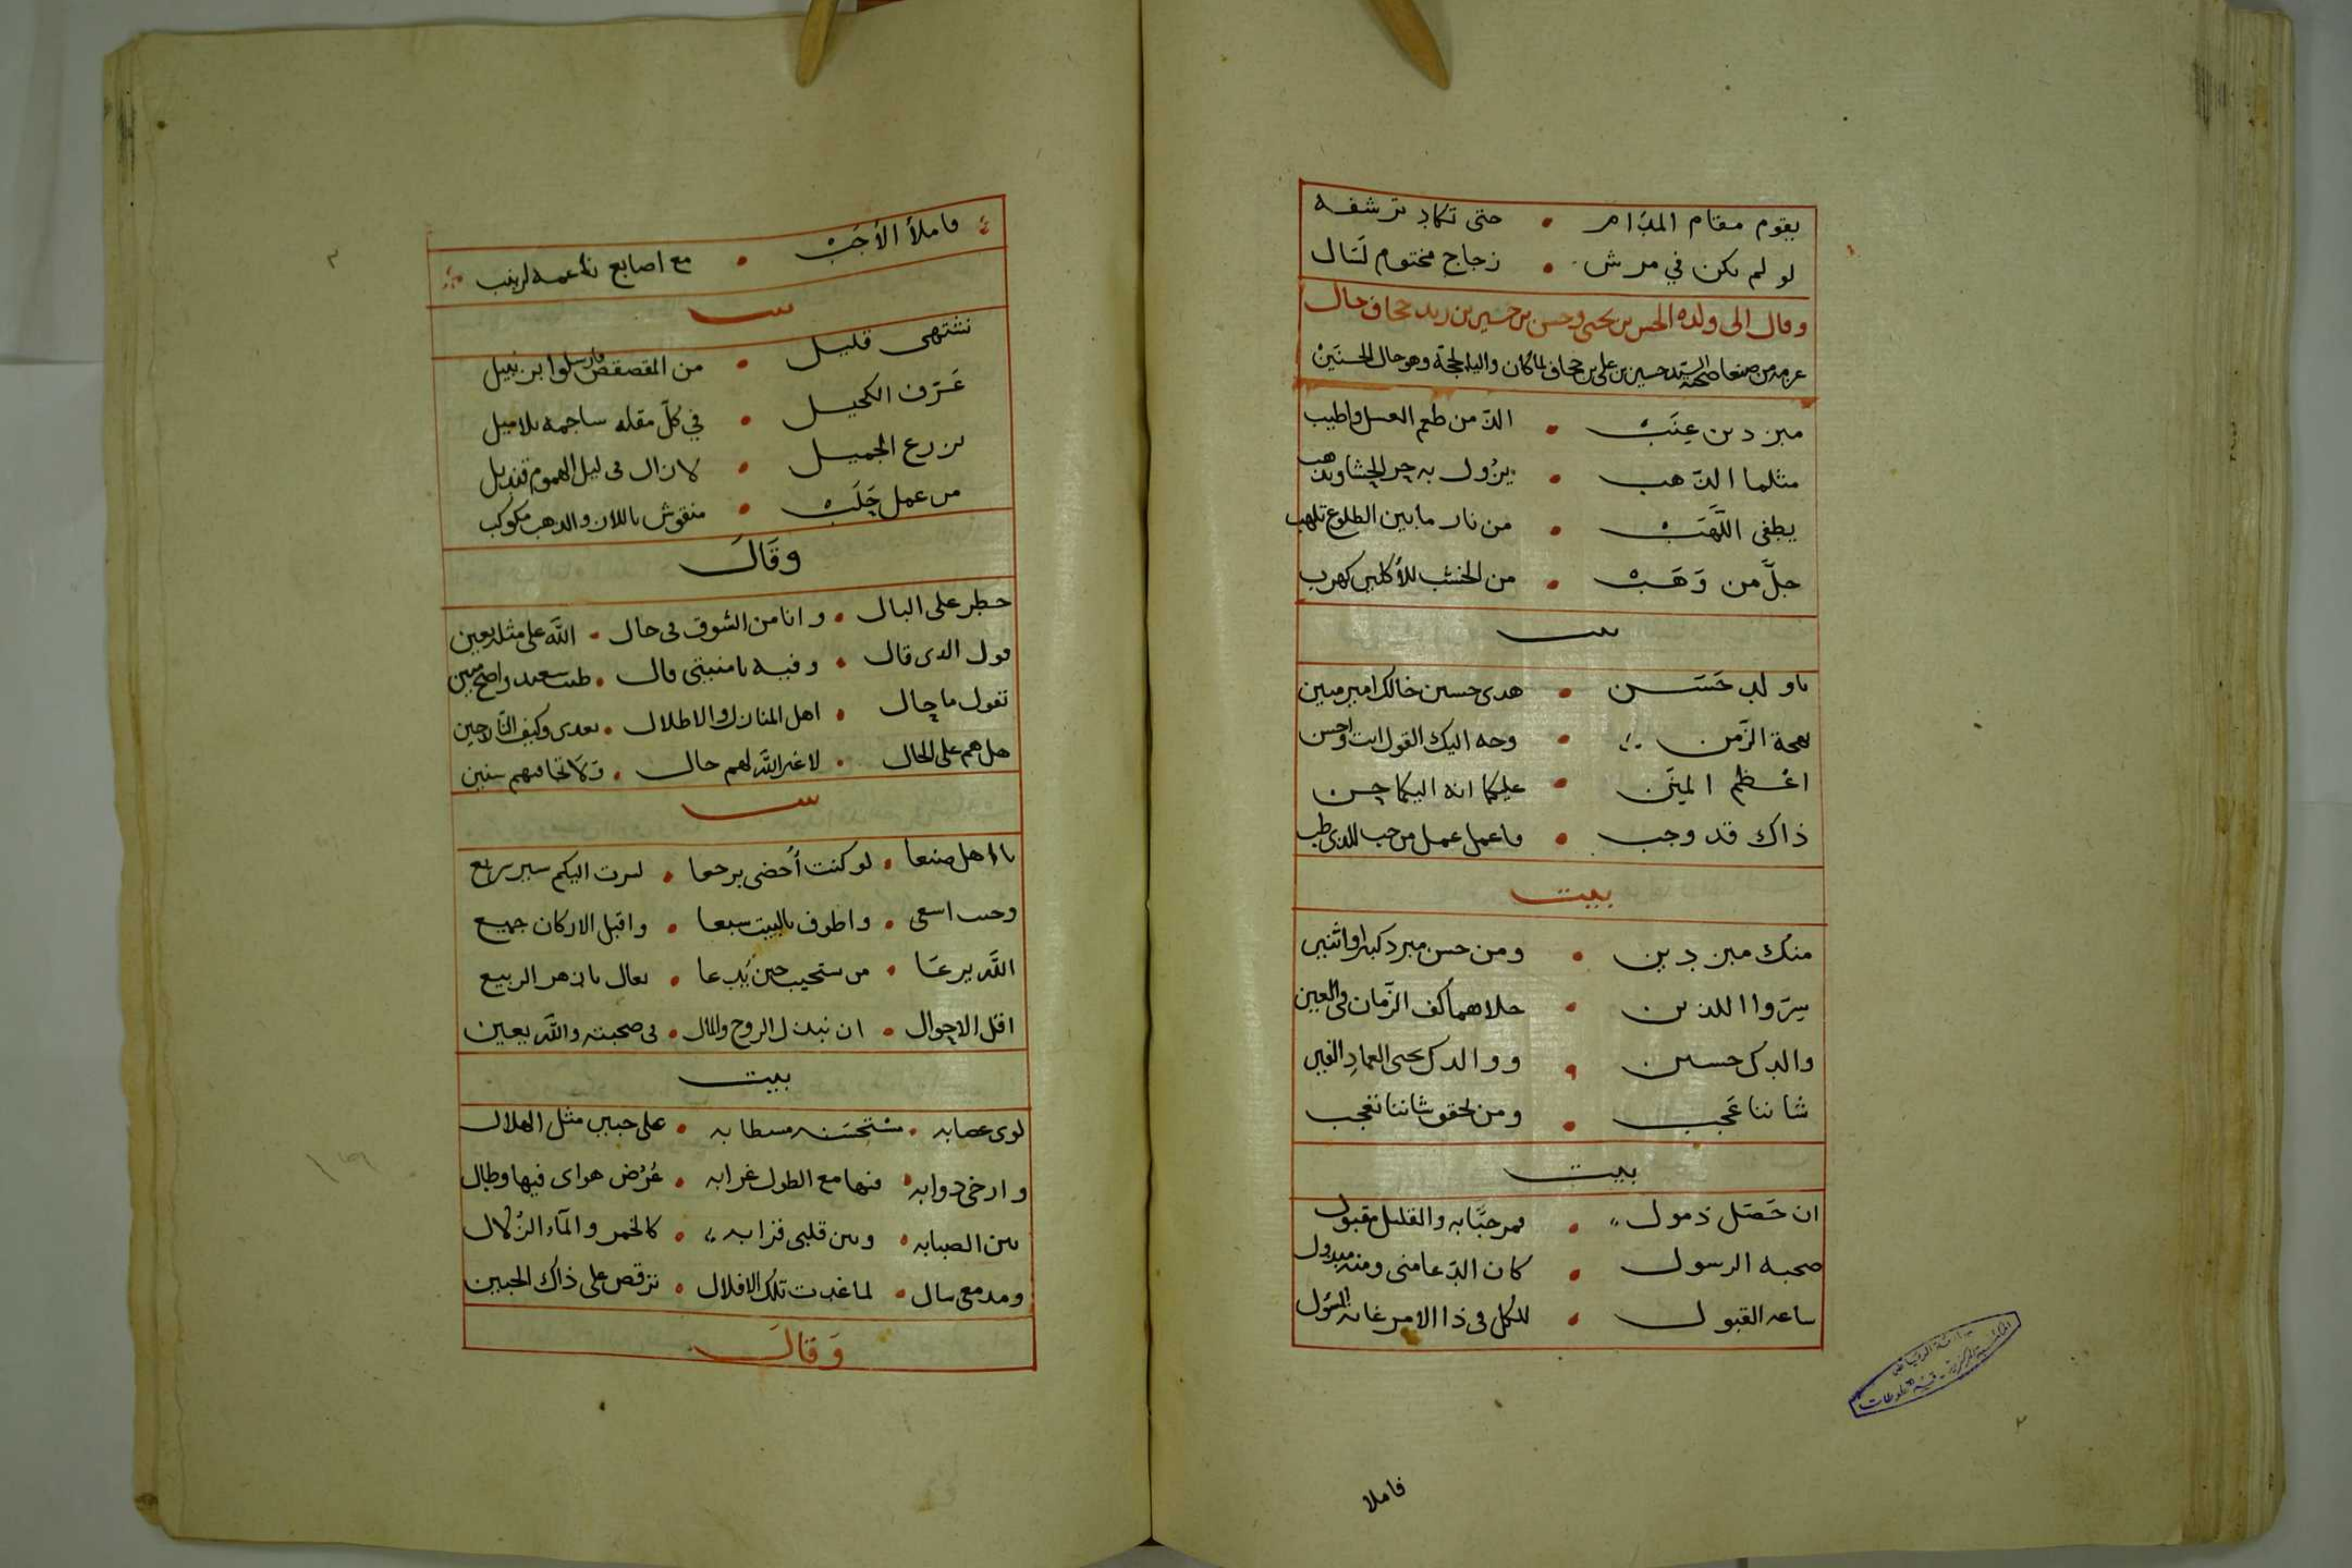 يقوم مقام المدام • حتى تكاد ترشفه
لو لم يكن في مرش • زجاج مختوم لسال
وقال الى ولده الحسن بن يحيى وحسن بن حسين بن زيد جحاف حال
عزمه من صنعا صحبة السيد حسين بن علي بن جحاف لما كان واليا لحجة وهو حال الحسنين
مبزدين عِنَبْ • الذ من طعم العسل واطيب
مثلما الذهب • يزول به حر الحشا ويذهب
يطفي اللَّهَبْ • من نار ما بين الضلوع تلهب
جلَّ من وَهَبْ • من الخشب للأكلين كهرب
بيت
يا ولد حَسَن • هدى حسين خالك امير مبين
بهجة الزَّمن • وجه اليك القول انت واحسن
اعظم المِنَن • عليكما انه اليكما حسن
ذاك قد وجب • فاعمل عمل من حب للذي طب
بيت
منك مبزدين • ومن حسن مبرد كبار واثنين
سِرّوا اللذين • حلاهما كف الزَّمان في العين
والدك حسين • ووالدك يحيى العماد
شاننا عجب • ومن لحقو شاننا تعجب
بيت
ان حَصَل ذمول • فمرحبًا به والقليل مقبول
صحبه الرسول • كان الدعا مني ومنه مبذول
ساعه القبول • للكل في ذا الامر غايه السُول
فاملا
فاملأ الأجَبْ • مع اصابع ناعمه لزينب
بيت
نشتهي قليل • من المقصقص فارسلوا بزنبيل
عَرَف الكحيل • في كلّ مقله ساجمه بلا ميل
نزرع الجميل • لا زال في ليل الهموم قنديل
من عمل حَلَبْ • منقوش باللاز والذهب مكوكب
وقَالَ
خطر على البال • وانا من الشوق في حال • اللَّه على مثله يعين
قول الذي قال • وفيه يا منيتي فال • طيب سعيد واضح مبين
تقول ما حال • اهل المنازل والاطلال • بعدي وكيف النازحين
هل هم على الحال • لا غير اللَّه لهم حال • ولا تجافيهم سنين
بيت
يا اهل صنعا • لو كنت أُحضى برجعا • لسرت اليكم سير سريع
وحيث اسعى • واطوف بالبيت سبعا • واقبل الاركان جميع
اللَّه يرعا • من ستجيب حين يُدعا • تعال يا زهر الربيع
اقل الاحوال • ان نبذل الروح والمال • في صحبته واللَّه يعين
بيت
لوى عصابه • مُسْتَحْسَنه مستطابه • على جبين مثل الهلال
وارخى ذوابه • فيها مع الطول غرابه • عَرْض هواى فيها وطال
بين الصبابه • وبين قلبي قرابه • كالخمر والمآء الزُّلال
ومدمعي سال • لما غدت تلك الاقلال • ترقص على ذاك الجبين
وَقالَ